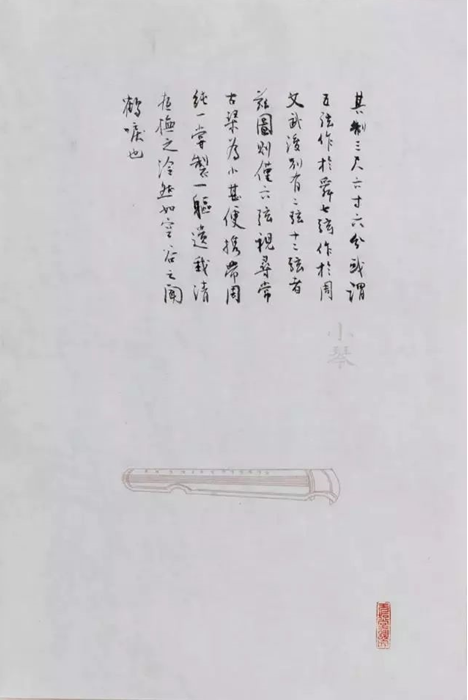 其制三尺六寸六分或謂
五弦作於舜七弦作於周
文武後別有二弦十二弦者
茲圖則僅六弦視尋常
古琹為小甚便携帶周
純一嘗製一軀遺我清
夜撫之泠然如空谷之聞
鶴唳也
小琴